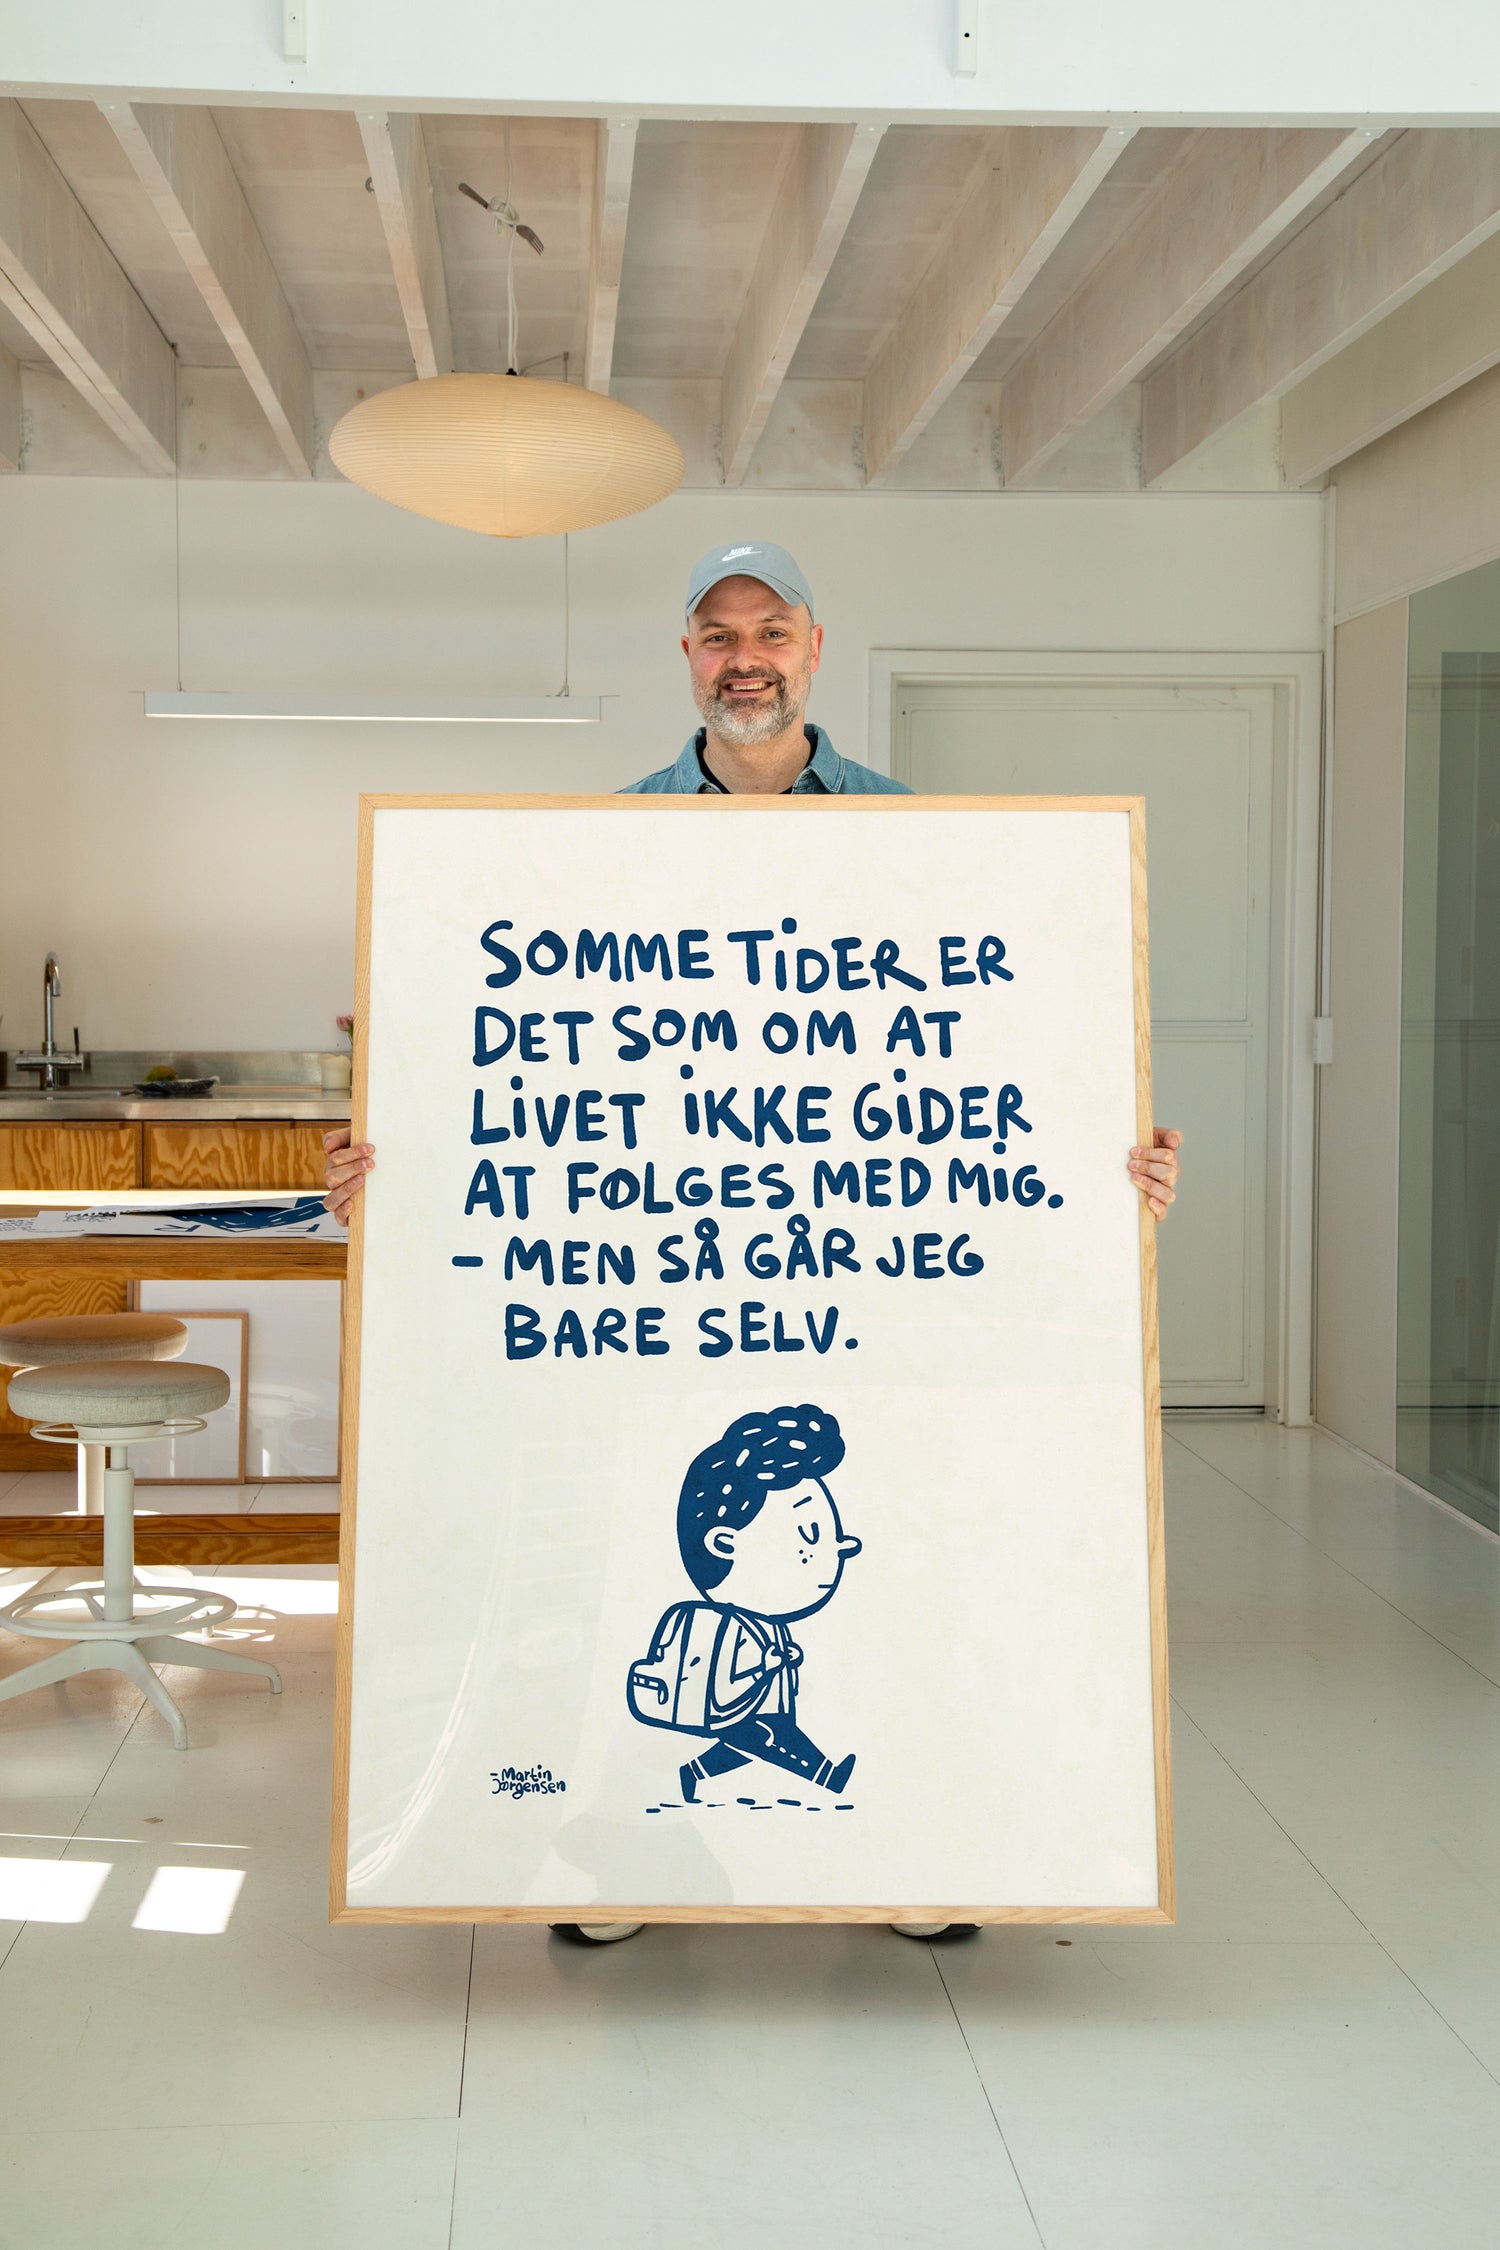 NIKE
SOMME TiDER ER
DET SOM OM AT
LiVET iKKE GiDER
AT FØLGES MED MiG.
- MEN SÅ GÅR JEG
BARE SELV.
- Martin
Jørgensen